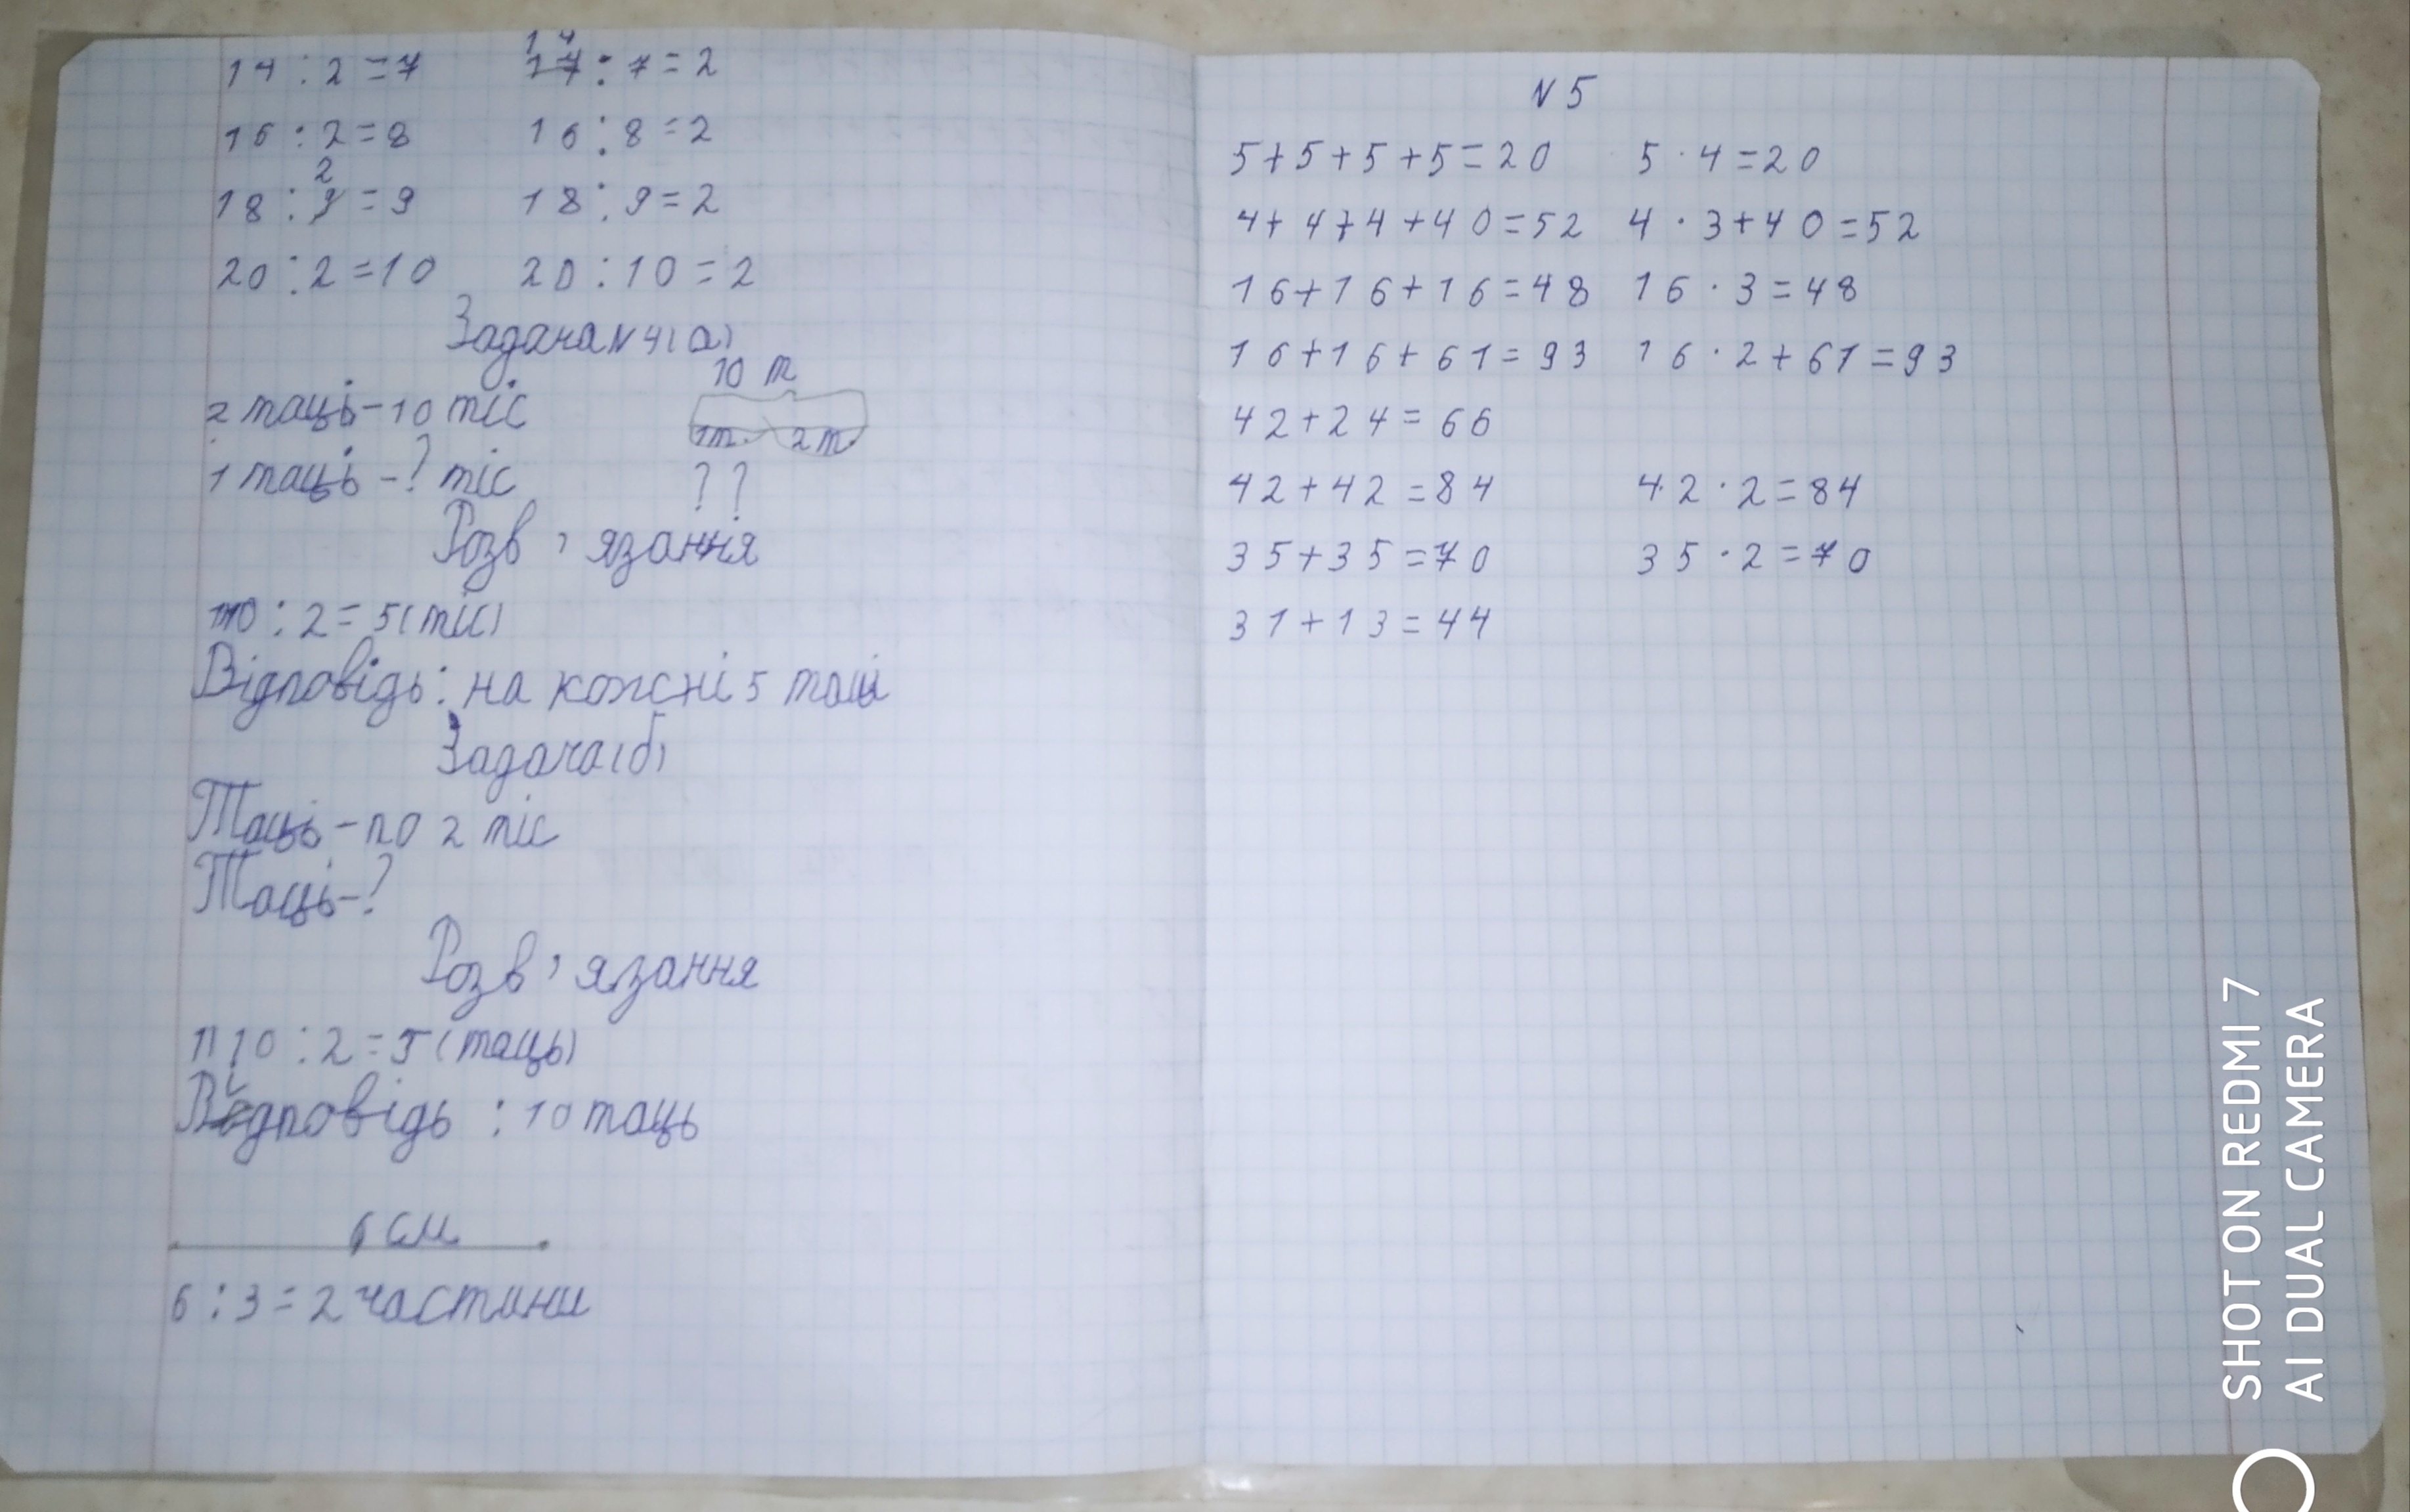 14 : 2 = 7 14 : 7 = 2
16 : 2 = 8 16 : 8 = 2
18 : 2 = 9 18 : 9 = 2
20 : 2 = 10 20 : 10 = 2
Задача N 4(а)
10 т
2 таць - 10 тіс
1т. 2т.
1 таць - ? тіс ? ?
Розв'язання
10 : 2 = 5 (тіс)
Відповідь: на кожні 5
Задача (б)
Таць - по 2 тіс
Таць - ?
Розв'язання
10 : 2 = 5 (таць)
Відповідь : 10 таць
6 см
6 : 3 = 2 частини
N 5
5 + 5 + 5 + 5 = 20 5 · 4 = 20
4 + 4 + 4 + 40 = 52 4 · 3 + 40 = 52
16 + 16 + 16 = 48 16 · 3 = 48
16 + 16 + 61 = 93 16 · 2 + 61 = 93
42 + 24 = 66
42 + 42 = 84 42 · 2 = 84
35 + 35 = 70 35 · 2 = 70
31 + 13 = 44
SHOT ON REDMI 7
AI DUAL CAMERA